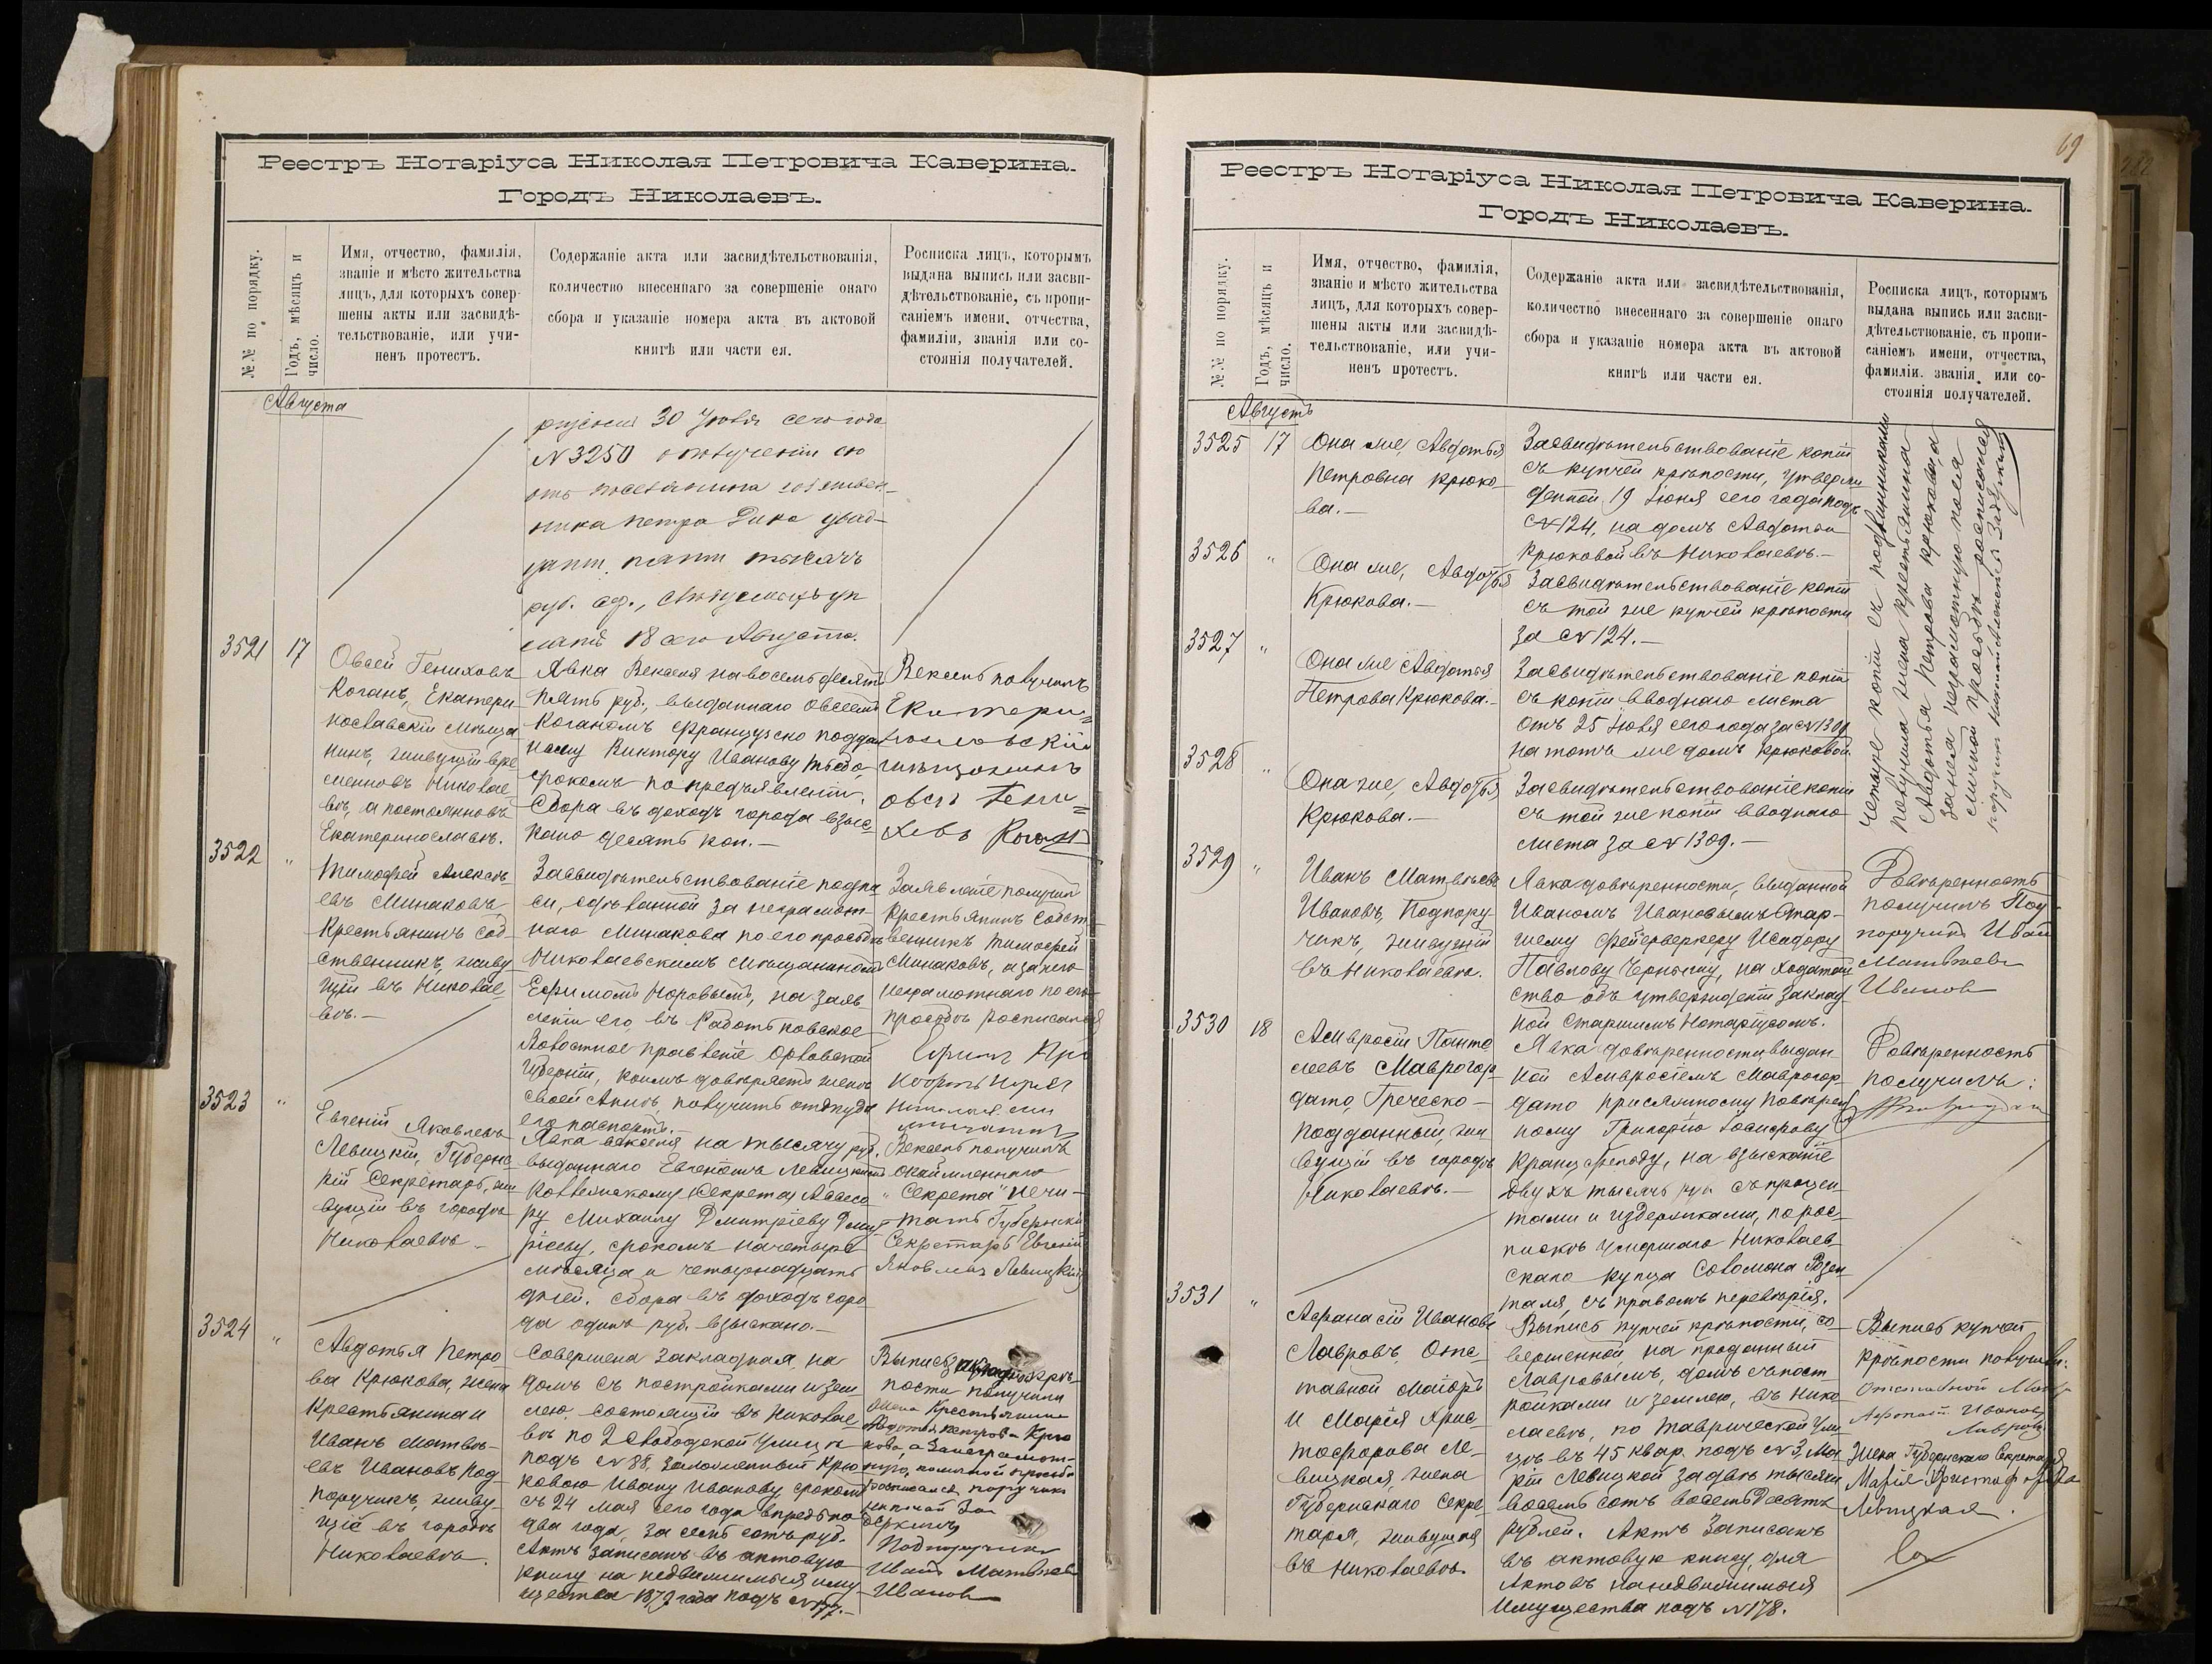 Реестръ Нотаріуса Николая Петровича Каверина.
Городъ Николаевъ.
№№ по порядку.
Годъ, мѣсяцъ и
число.
Имя, отчество, фамилія,
званіе и мѣсто жительства
лицъ, для которыхъ совер-
шены акты или засвидѣ-
тельствованіе, или учи-
ненъ протестъ.
Содержаніе акта или засвидѣтельствованія,
количество внесеннаго за совершеніе онаго
сбора и указаніе номера акта въ актовой
книгѣ или части ея.
Росписка лицъ, которымъ
выдана выпись или засви-
дѣтельствованіе, съ пропи-
саніемъ имени, отчества,
фамиліи, званія или со-
стоянія получателей.
Августа
30 Іюля сего года
N 3250 о полученіи
отъ поселянина собствен-
ника Петра двад-
цати пяти тысячъ
руб.
18 сего Августа.
3521
17
Овсей Гениховъ
Коганъ, Екатери-
нославскій мѣща
нинъ, живущій вре
менновъ Николае-
вѣ, а постоянновъ
Екатеринославѣ.
Явка Векселя на восемьдесятъ
пять руб., выданнаго Овсеемъ
Коганомъ французско поддан
ному Виктору Иванову
срокомъ по предъявленіи.
Сбора въ доходъ города взыс-
кано десять коп.—
Вексель получилъ
Екатери=
нославскій
мѣщанинъ
овсей Гени=
ховъ Коганъ
3522
"
Тимофей Алексѣ
евъ Минаковъ
Крестьянинъ соб-
ственникъ, живу
щій въ Николае-
вѣ.—
Засвидѣтельствованіе подпи
си, сдѣланной за неграмот-
наго Минакова по его просьбѣ
Николаевскимъ Мѣщаниномъ
Ефимомъ Норовымъ, на заяв
леніи его, въ Работьковское
Волостное правленіе Орловской
Губерніи, коимъ довѣряетъ женѣ
своей получить оттуда
его паспортъ.—
Заявленіе получилъ
Крестьянинъ Собст
венникъ Тимофей
Минаковъ, а за него
неграмотнаго по его
просьбѣ росписался
3523
"
Евгеній Яковлевъ
Левицкій, Губернс
кій Секретарь, жи
вущій въ городѣ
Николаевѣ.
Явка векселя на тысячу руб.
выданнаго Евгеніемъ Левицкимъ
Коллежскому Секретарю
ру Михаилу Дмитріеву Дмит
ріеву, срокомъ на четыре
мѣсяца и четырнадцать
дней. Сбора въ доходъ горо
да одинъ руб. взыскано.—
Вексель получилъ
"Секрета" печи-
тать Губернскій
Секретарь Евгеній
Яковлевъ Левицкій
3524
"
Авдотья Петро
ва Крюкова, жена
Крестьянина и
Иванъ Матвѣ-
евъ Ивановъ Под-
поручикъ, живу
щіе въ городѣ
Николаевѣ.
Совершена закладная, на
домъ съ постройками и зем
лею, состоящій въ Николае
вѣ по 2 Слободской Улицѣ
подъ N 88, заложенный Крю
ковою Ивану Иванову, срокомъ
съ 24 мая сего года впредь на
два года, за семь сотъ руб.
Актъ записанъ въ актовую
книгу на недвижимыя иму
щества 1879 года подъ N 177.—
Выпись закладной крѣ-
пости получили
жена Крестьянина
Авдотья петрова Крю
кова, а за неграмот-
ную, по личной просьбѣ
росписался поручикъ
Николай За
деркинъ
Подпоручикъ
Иванъ Матвѣевъ
Ивановъ
69
Реестръ Нотаріуса Николая Петровича Каверина.
Городъ Николаевъ.
№№ по порядку.
Годъ, мѣсяцъ и
число.
Имя, отчество, фамилія,
званіе и мѣсто жительства
лицъ, для которыхъ совер-
шены акты или засвидѣ-
тельствованіе, или учи-
ненъ протестъ.
Содержаніе акта или засвидѣтельствованія,
количество внесеннаго за совершеніе онаго
сбора и указаніе номера акта въ актовой
книгѣ или части ея.
Росписка лицъ, которымъ
выдана выпись или засви-
дѣтельствованіе, съ пропи-
саніемъ имени, отчества,
фамиліи. званія, или со-
стоянія получателей.
Августъ
3525
17
Она же, Авдотья
Петровна Крюко-
ва.—
Засвидѣтельствованіе копіи
съ купчей крѣпости, утверж
денной 19 Іюня сего года подъ
N 124, на домъ Авдотьи
Крюковой въ Николаевѣ.—
3526
"
Она же, Авдотья
Крюкова.—
Засвидѣтельствованіе копіи
съ той же купчей крѣпости
за N 124.—
3527
"
Она же Авдотья
Петрова Крюкова.—
Засвидѣтельствованіе копіи
съ копіи вводнаго листа
отъ 25 Іюля сего года за N 1309
на тотъ же домъ Крюковой.
3528
"
Она же, Авдотья
Крюкова.—
Засвидѣтельствованіе копіи
съ той же копіи вводнаго
листа за N 1309.—
Четыре копіи съ подлинниками
получила жена крестьянина
Авдотья Петрова Крюкова, а
за нея неграмотную по ея
личной просьбѣ росписался
3529
"
Иванъ Матвѣевъ
Ивановъ, Подпору-
чикъ, живущій
въ Николаевѣ.
Явка довѣренности, выданной
Иваномъ Ивановымъ Стар-
шему фейерверкеру Исидору
Павлову Черныщу, на ходатай
ство объ утвержденіи заклад
ной Старшимъ Нотаріусомъ.
Довѣренность
получилъ Под-
поручикъ Иванъ
Матвѣевъ
Ивановъ
3530
18
Амвросій Панте
леевъ Маврогор-
дато, Греческо-
подданный, жи
вущій въ городѣ
Николаевѣ.—
Явка довѣренности, выдан-
ной Амвросіемъ Маврогор-
дато присяжному повѣрен
ному Григорію Іосифову
Кранцфельду, на взысканіе
двухъ тысячъ руб. съ процен-
тами и издержками, по рос-
пискѣ умершаго Николаев-
скаго купца Соломона Розен
таля, съ правомъ перевѣрія.
Довѣренность
получилъ:
3531
"
Афанасій Ивановъ
Лавровъ, Отс-
тавной Маіоръ
и Марія Хрис-
тофорова Ле-
вицкая, жена
Губернскаго Секре
таря, живущія
въ Николаевѣ.
Выпись купчей крѣпости, со-
вершенной, на проданный
Лавровымъ, домъ съ пост-
ройками и землею, въ Нико
лаевѣ, по Таврической Ули
цѣ въ 45 квар. подъ N 3, Ма
ріи Левицкой за двѣ тысячи
восемь сотъ восемьдесятъ
рублей. Актъ записанъ
въ актовую книгу, для
Актовъ на недвижимыя
Имущества подъ N 178.
Выпись купчей
крѣпости получили:
Отставной Маіоръ
Афанасій Ивановъ
Лавровъ
Жена Губернскаго Секретаря
Марія Христофорова
Левицкая.